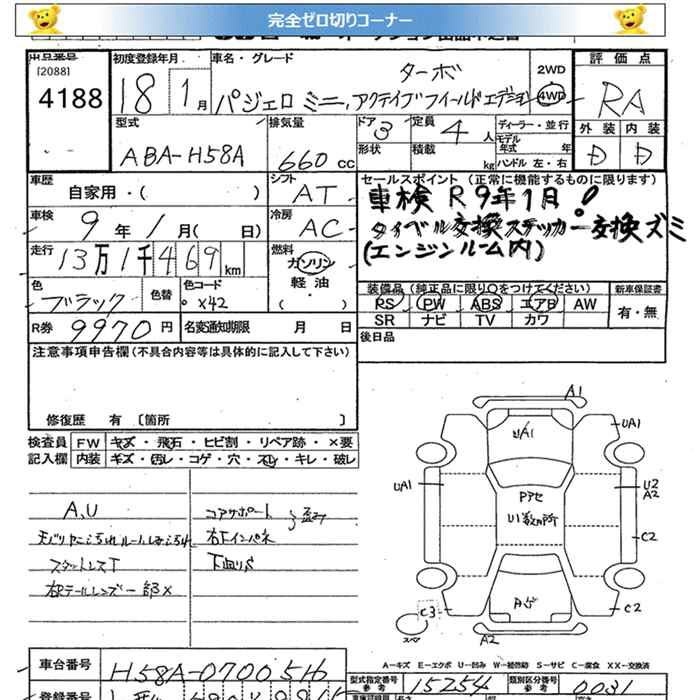 完全ゼロ切りコーナー
出品番号
[2088]
4188
初度登録年月
18 1月
車名・グレード
ターボ
パジェロミニ,アクティブフィールドエディション
2WD
4WD
評価点
RA
外装 内装
D D
型式
ABA-H58A
排気量
660 CC
ドア 3
形状
定員 4人
積載 kg
ディーラー・並行
モデル年式 年
ハンドル 左・右
車歴
自家用・( )
シフト
AT
車検
9年 1月( 日)
冷房
AC
走行
13万1千469km
燃料
ガソリン
軽油
・( )
色
ブラック
色替
色コード
X42
R券 9970円
名変通知期限 月 日
セールスポイント (正常に機能するものに限ります)
車検 R9年1月
タイベル交換ステッカー交換ズミ
(エンジンルーム内)
装備品 (純正品に限り○をつけてください)
新車保証書
PS PW ABS エアB AW
有・無
SR ナビ TV カワ
後日品
注意事項申告欄(不具合内容等は具体的に記入して下さい)
修復歴 有 〔箇所 〕
検査員 FW キズ・飛石・ヒビ割・リペア跡・×要
記入欄 内装 キズ・汚レ・コゲ・穴・スレ・キレ・破レ
A,U
コアサポート
右下インパネ
スタットレスT
右テールレンズ一部X
下廻りS
A1
UA1
UA1
UA1
U2
A2
Pアセ
U1数ヶ所
C2
C3
C2
スペア
A2
A-キズ E-エクボ U-凹み W-補修跡 S-サビ C-腐食 XX-交換済
車台番号
H58A-0700516
型式指定番号
参考
15254
類別区分番号
参考
0031
登録番号